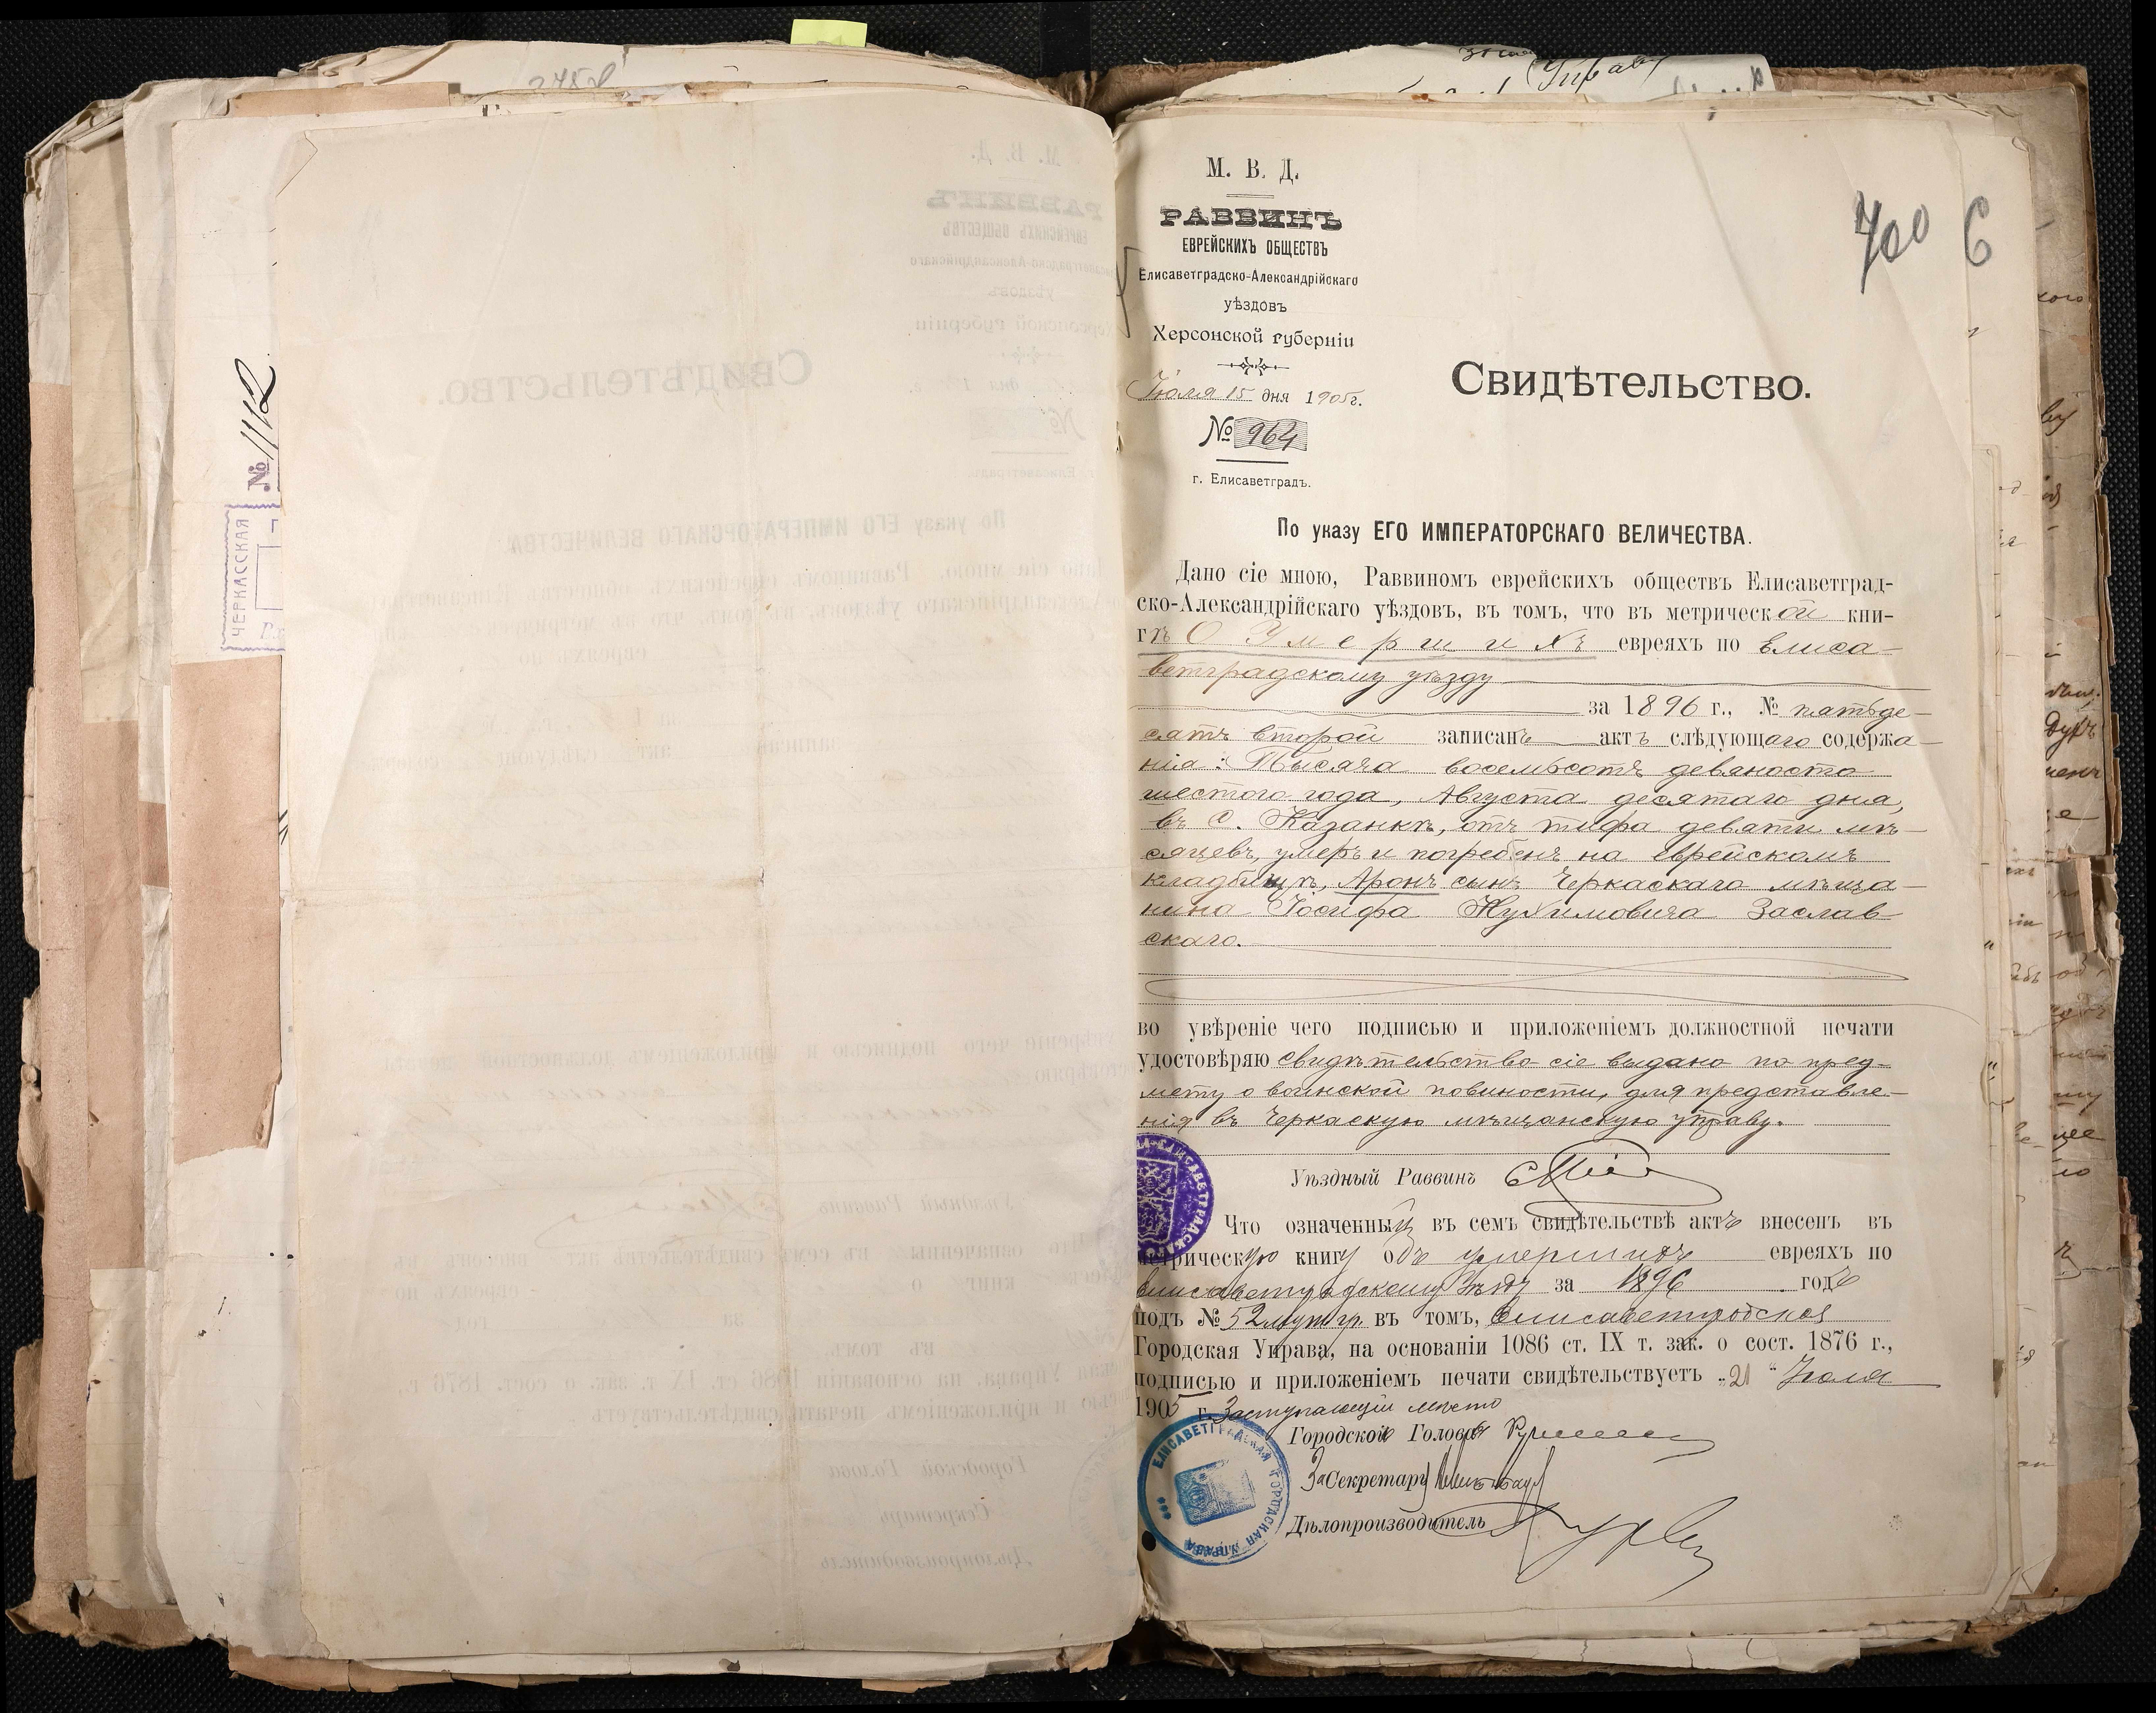 2758
№ 1112
ЧЕРКАССКАЯ
Управу
700 6
М. В. Д.
РАВВИНЪ
ЕВРЕЙСКИХЪ ОБЩЕСТВЪ
Елисаветградско-Александрійскаго
уѣздовъ
Херсонской губерніи
Іюля 15 дня 1905 г.
№ 964
г. Елисаветградъ.
Свидѣтельство.
По указу ЕГО ИМПЕРАТОРСКАГО ВЕЛИЧЕСТВА.
Дано сіе мною, Раввиномъ еврейскихъ обществъ Елисаветград-
ско-Александрійскаго уѣздовъ, въ томъ, что въ метрической кни-
гѣ О Умершихъ евреяхъ по Елиса-
ветградскому уѣзду
за 1896 г., № пятьде-
сятъ второй записанъ актъ слѣдующаго содержа-
нія: Тысяча восемьсотъ девяносто
шестого года, Августа десятаго дня,
въ с. Казанкѣ, отъ тифа девяти мѣ-
сяцевъ, умеръ и погребенъ на еврейскомъ
кладбищѣ, Аронъ сынъ Черкаскаго мѣща-
нина Іосифа Нухимовича Заслав-
скаго.
во увѣреніе чего подписью и приложеніемъ должностной печати
удостовѣряю свидѣтельство сіе выдано по пред-
мету о воинской повиности, для представле-
нія въ Черкаскую мѣщанскую управу.
Уѣздный Раввинъ
Что означенный въ семъ свидѣтельствѣ актъ внесенъ въ
метрическую книгу объ умершихъ евреяхъ по
Елисаветградскому уѣзду за 1896 годъ
подъ № 52 муж. гр. въ томъ, Елисаветградская
Городская Управа, на основаніи 1086 ст. IX т. зак. о сост. 1876 г.,
подписью и приложеніемъ печати свидѣтельствуетъ „21" Іюля
1905 г. Заступающій мѣсто
Городского Головы
За Секретаря
Дѣлопроизводитель
ЕЛИСАВЕТГРАДСКАЯ ГОРОДСКАЯ УПРАВА